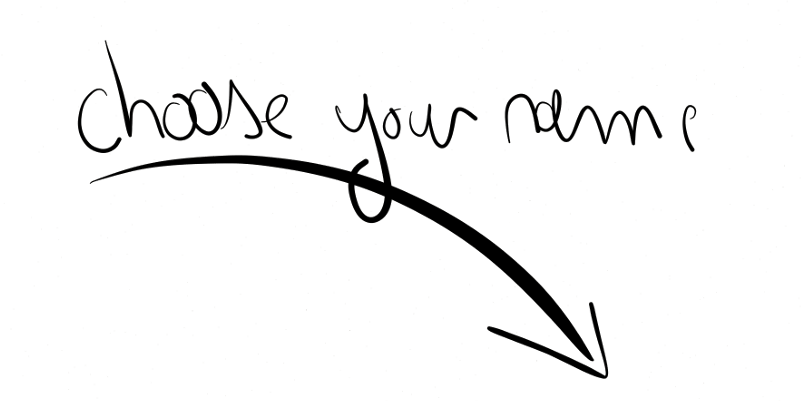 choose your name